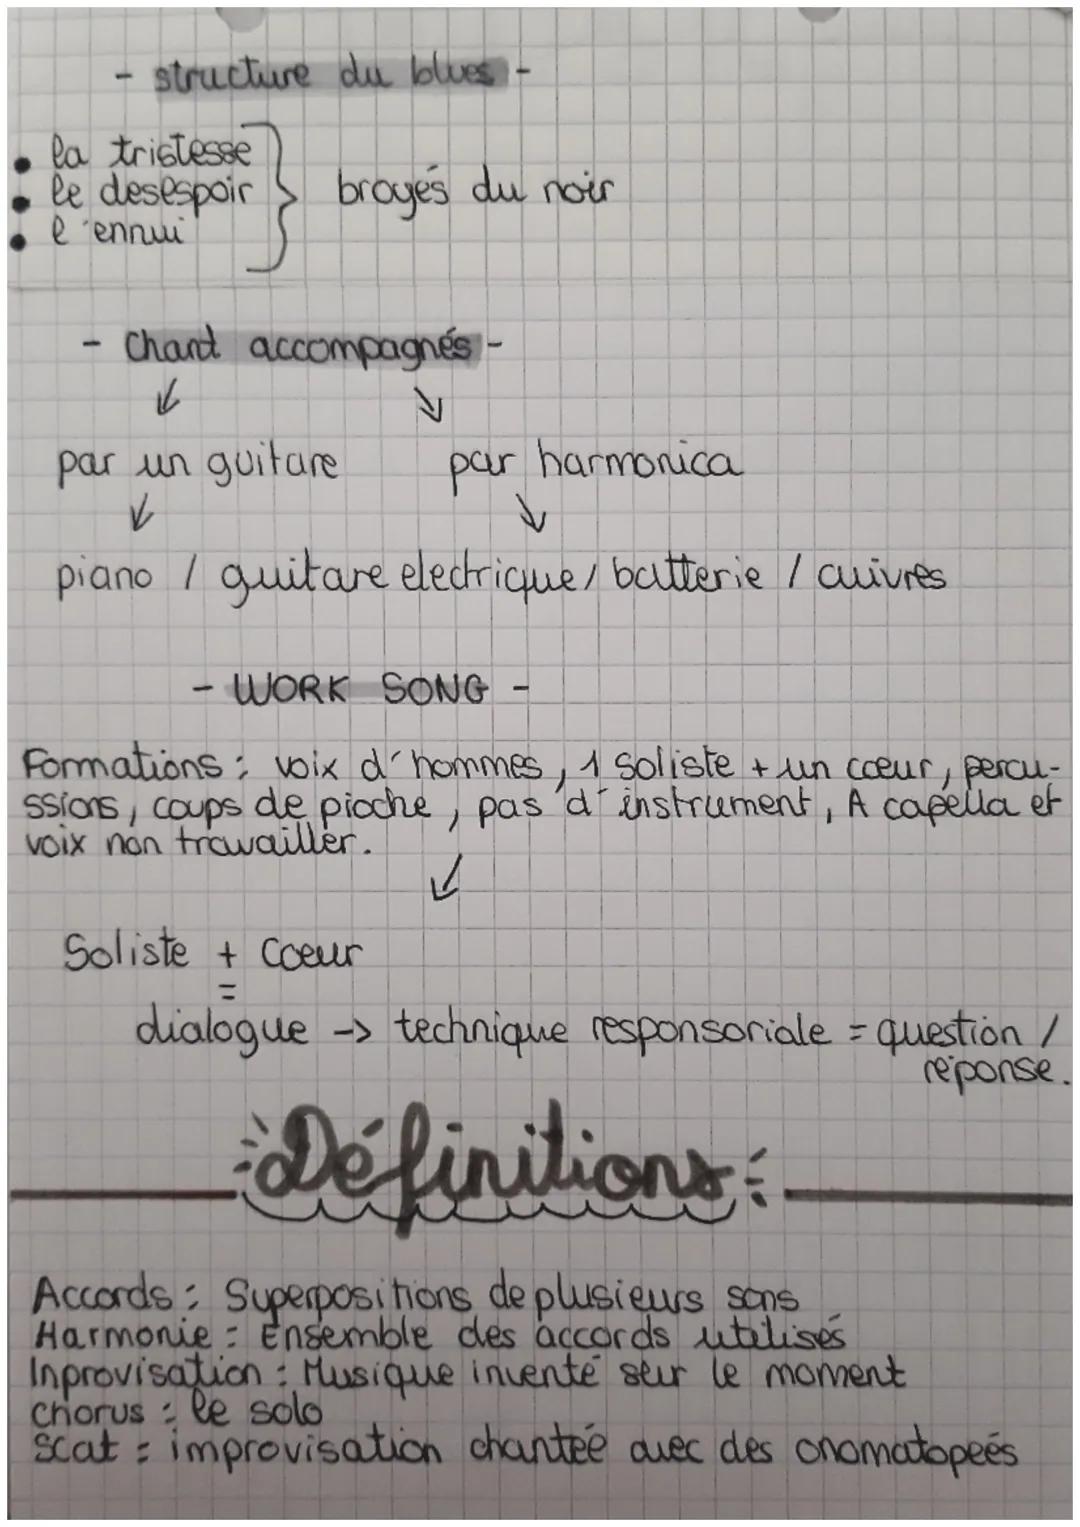 - structure du blues -
• la tristesse
• le desespoir
• l'ennui
broyés du noir
- Chant accompagnés -
par un guitare par harmonica
piano / guitare electrique / batterie / cuivres
- WORK SONG -
Formations : voix d'hommes, 1 soliste + un cœur, percu-
ssions, coups de pioche, pas d'instrument, A capella et
voix non travailler.
Soliste + Coeur
=
dialogue -> technique responsoriale = question /
réponse.
Définitions
Accords : Superpositions de plusieurs sons
Harmonie : Ensemble des accords utilisés
Inprovisation : Musique inventé sur le moment
Chorus : le solo
Scat : improvisation chantée avec des onomatopeés